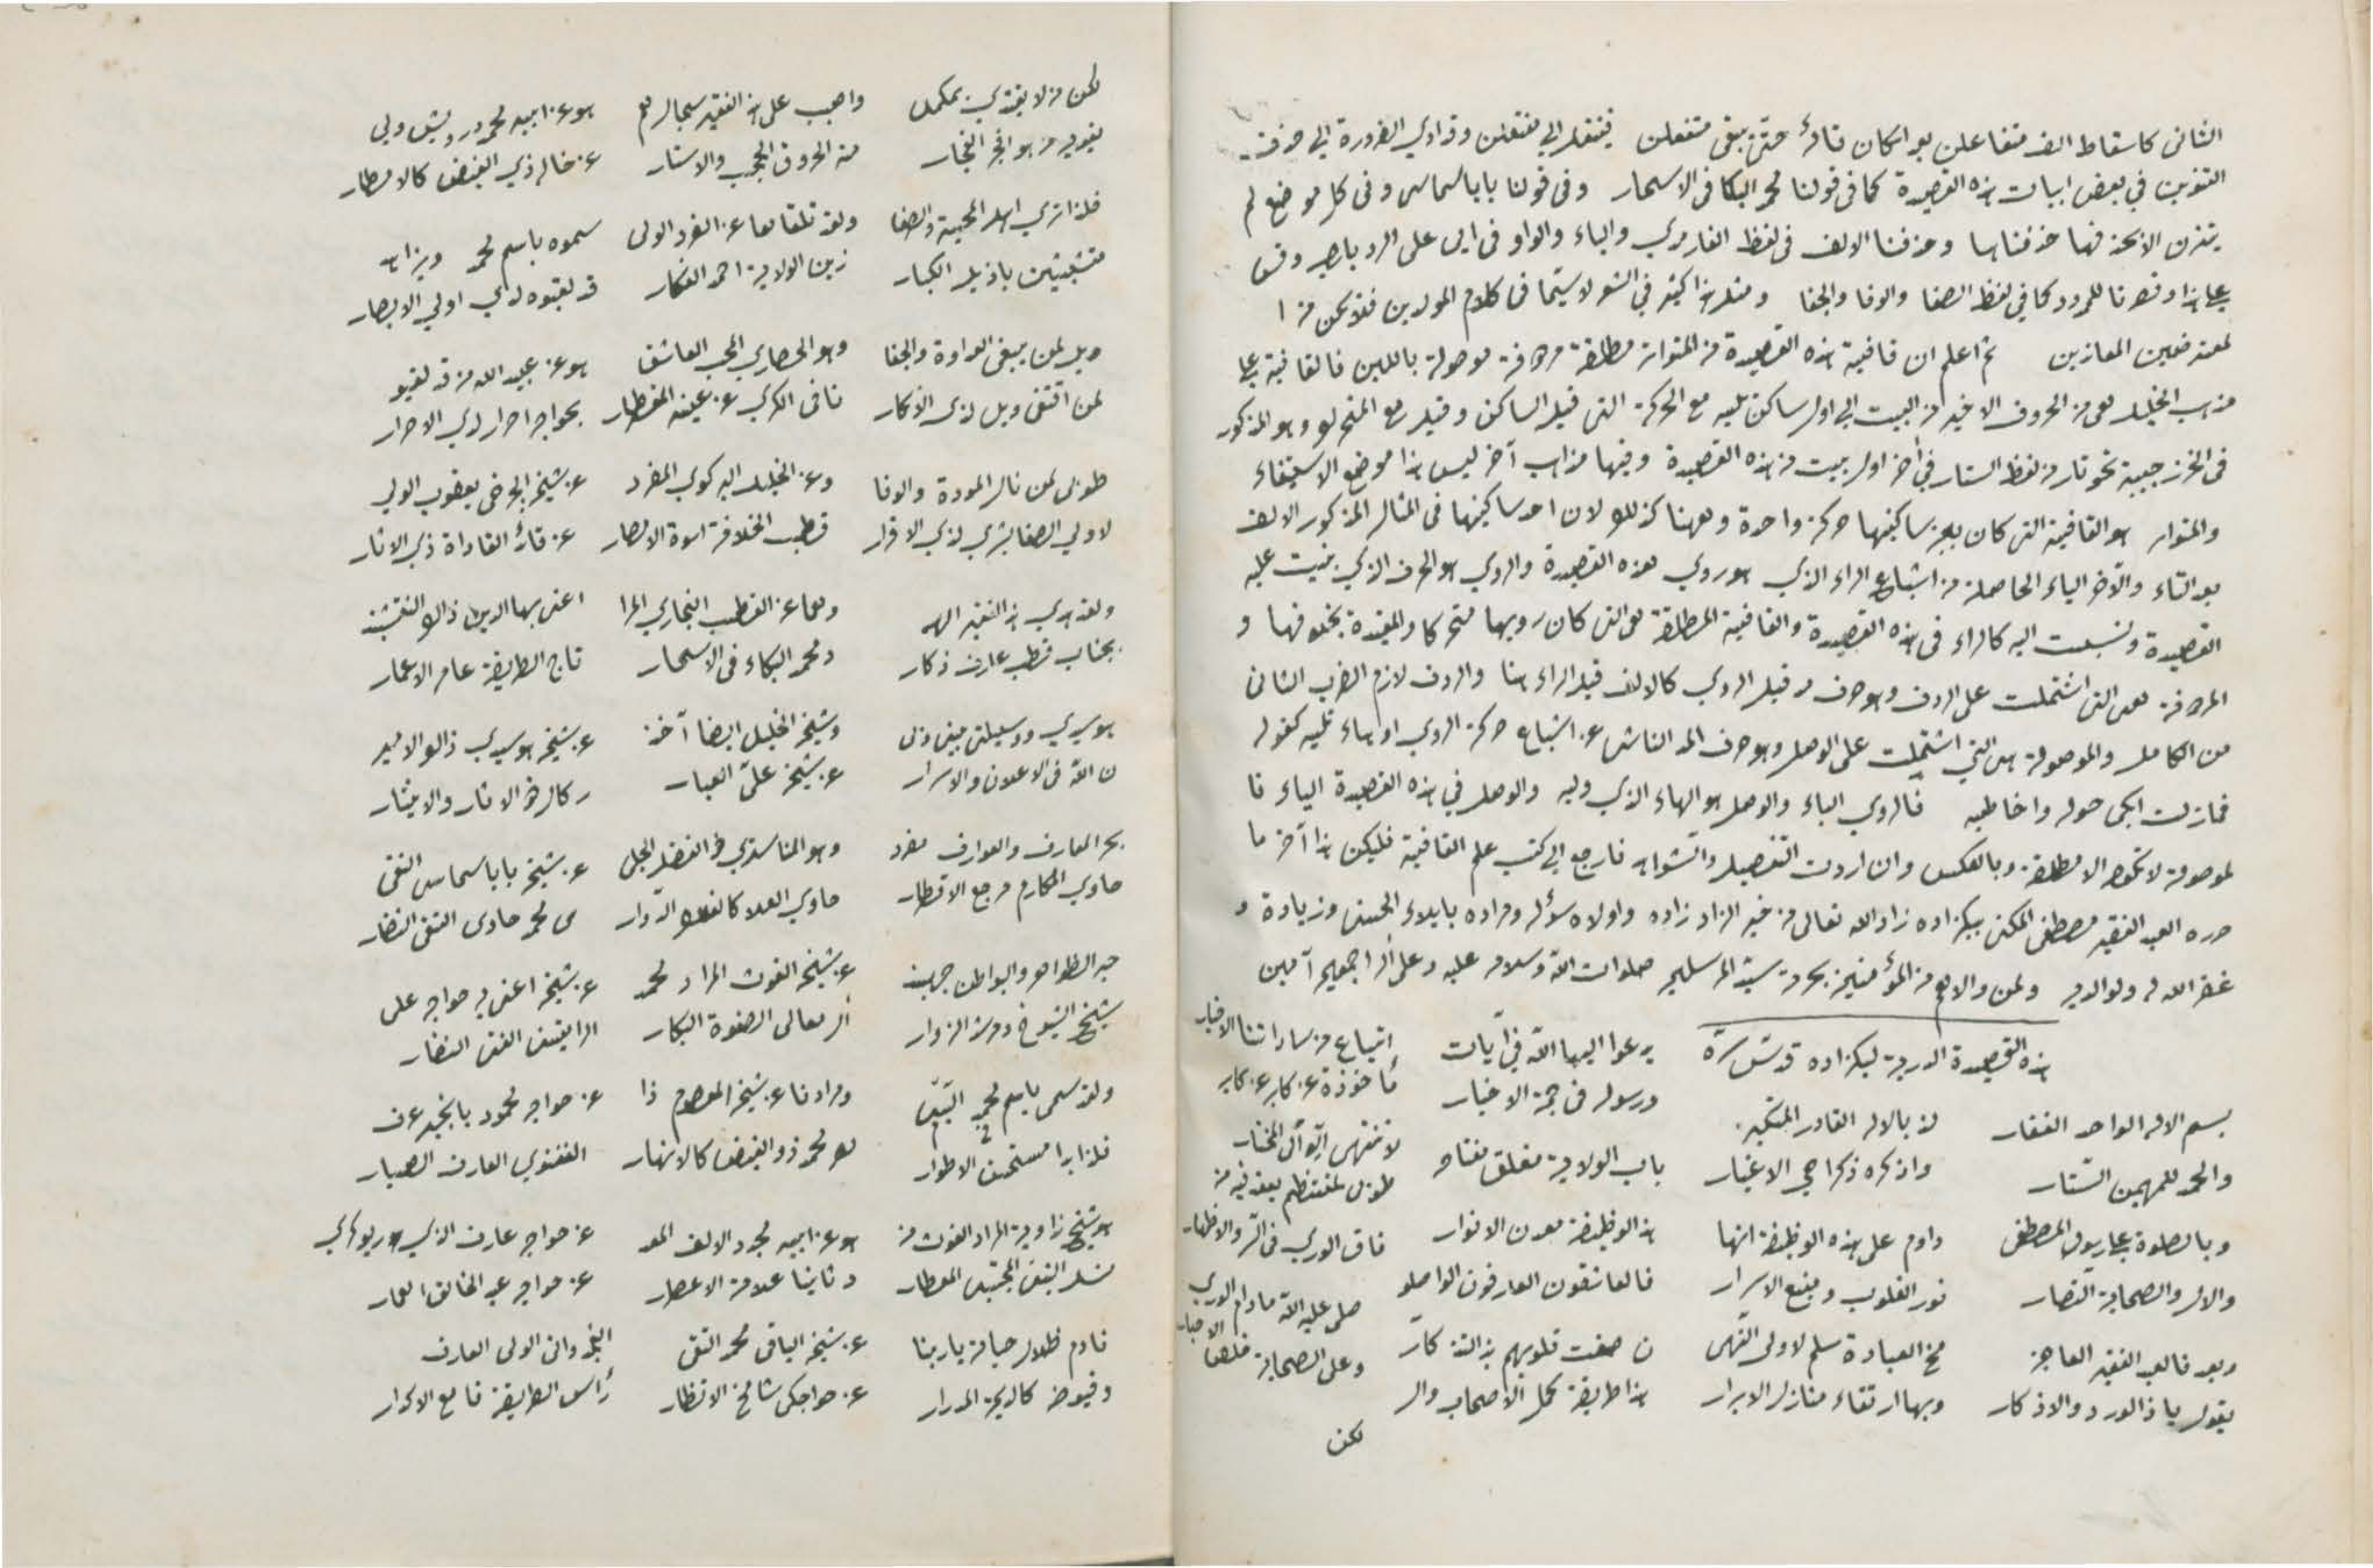 الثانى كاسقاط الف متفاعلن بعد اسكان تائه حتى يبقى متفعلن فينقل الى مفتعلن وقد ادى الضرورة الى حذف
التنوين في بعض ابيات هذه القصيدة كما فى قولنا محمد البكا فى الاسحار وفى قولنا بابا سماسى وفى كل موضع لم
يتزن الا بحذفها حذفناها وحذفنا الالف فى لفظ
على هذا وقصرنا الممدود كما في لفظ الصفا والوفا والجفا ومثل هذا كثير في الشعر لا سيما فى كلام المولدين فلا تكن من ا
لمعترضين المعاندين ثم اعلم ان قافية هذه القصيدة من المتواتر مطلقة مردفة موصولة باللين فالقافية على
مذهب الخليل هى من الحروف الاخير من البيت الى اول ساكن يليه مع الحركة التى قبل الساكن وقيل مع المتحرك وهو المذكور
فى الخزرجية نحو تار من لفظ الستار في آخر اول بيت من هذه القصيدة وفيها مذاهب آخر ليس هذا موضع الاستيفاء
والمتواتر هو القافية التى كان بين ساكنيها حركة واحدة وههنا كذلك لان احد ساكنيها فى المثال المذكور الالف
بعد التاء والآخر الياء الحاصلة من اشباع الراء الذي هو روي هذه القصيدة والروي هو الحرف الذي بنيت عليه
القصيدة ونسبت اليه كالراء فى هذه القصيدة والقافية المطلقة هى التى كان رويها متحركا والمقيدة بخلافها و
المردفة هى التى اشتملت على الردف وهو حرف مد قبل الروي كالالف قبل الراء هنا والردف لازم الضرب الثانى
من الكامل والموصولة هى التي اشتملت على الوصل وهو حرف المد الناشى عن اشباع حركة الروي او هاء تليه كقوله
فمازلت ابكى حوله واخاطبه فالروي الباء والوصل هو الهاء الذي وليه والوصل في هذه القصيدة الياء فا
لموصولة لا تكون الا مطلقة وبالعكس وان اردت التفصيل والشواهد فارجع الى كتب علم القافية فليكن هذا آخر ما
حرره العبد الفقير مصطفى المكنى ببيكزاده زاد الله تعالى من خير الزاد زاده واولاه سؤله ومراده بايلاء الحسنى وزيادة و
غفر الله له ولوالديه ولمن والاهم من المؤمنين بحرمة سيد المرسلين صلوات الله وسلامه عليه وعلى آله اجمعين آمين
هذه القصيدة الدرية لبيكزاده قدس سره
بسم الاله الواحد الغفار
والحمد للمهيمن الستار
وبالصلوة على رسول المصطفى
والال والصحابة
وبعد فالعبد الفقير العاجز
يقول يا ذا الورد والاذكار
لذ بالاله القادر المتكبر
واذكره ذكرا
داوم على هذه الوظيفة انها
نور القلوب ومنبع الاسرار
مخ العبادة سلم لاولى النهى
وبها ارتقاء منازل الابرار
يدعوا اليها الله في آيات
ورسوله فى جمة الاخبار
باب الولاية مغلق مفتاحه
هذا الوظيفة معدن الانوار
فالعاشقون العارفون الواصلو
ن صفت قلوبهم بذا التذكار
هذا طريقة كمل الاصحاب وال
اتباع من ساداتنا الاخيار
مأخوذة عن كابر عن كابر
لا تنتهى آلى المختار
طوبى لمنتظم بعقد فيه من
فاق الورى فى السر والاظهار
صلى عليه الله مادام الورى
وعلى الصحابة الاخيار
لكن
لكن من لا يقتدي بمكمل
يغويه من هو افجر الفجار
فلذا ترى اهل المحبة والصفا
متشبثين باذيل الكبار
ويل لمن يبغى العداوة والجفا
لمن اقتفى ويل لذى الانكار
طوبى لمن نال المودة والوفا
لاولي الصفا بشرى لذي الاقرار
ولقد هدى هذا الفقير الهه
بجناب قطب عارف ذكار
هو سيدي ووسيلتي بينى وبى
ن الله فى الاعلان والاسرار
بحر المعارف والعوارف مفرد
حاوي المكارم مرجع الاقطار
حبر الظواهر والبواطن جهبذ
شيخ الشيوخ ومرشد الزوار
ولقد سمى باسم محمد النبى
فلذا بدا مستحسن الاطوار
هو شيخ زاوية المراد الغوث من
نسل النبى المجتبى المعطار
فادم ظلال حياته يا ربنا
وفيوضه كاديمة المدرار
واجب على هذا الفقير سجال رمع
منه الحروف الحجب والاستار
ولقد تلقاها عن الفرد الولى
زين الولاية احمد الفكار
وهو الحصاري المحب العاشق
نافى الكرى عن عينه المقطار
وعن الخليل البركوي المفرد
قطب الخلافة اسوة الابصار
وهما عن القطب البخاري المرا
د محمد البكاء فى الاسحار
وشيخ الخليل ايضا آخذ
عن شيخه على
وهو المناستري ذى الفضل الجلى
حاوي العلا كالفلك الدوار
عن شيخه الغوث المراد محمد
ال معالى الصفوة البكار
ومرادنا عن شيخه المعصوم ذا
هو محمد ذو الفيض كالانهار
هو عن ابيه مجدد الالف
د ثانيا علامة الاعصار
عن شيخه الباقى محمد التقى
عن خواجكى شامخ الانظار
هو عن ابيه محمد درويش ولى
عن خاله ذي الفيض كالامطار
سموه باسم محمد وبزاهد
قد لقبوه لدى اولي الابصار
هو عن عبيد الله من قد لقبو
بخواجه احرار لدي الاحرار
عن شيخه الجرخى يعقوب الولي
عن ذي الاثار
اعنى بها الدين ذاك النقشبند
تاج الطريقة عامر الاعمار
عن شيخه هو سيدي ذاك الامير
ر كلال ذو الاثار والايثار
عن شيخه بابا سماسى التقى
ى محمد هادى التقى النظار
عن شيخه اعنى به خواجه على
الرامتينى التقى النظار
عن خواجه محمود بانجير عرف
الفغنوي العارف الصبار
عن خواجه عارف الذي هو ريوكري
عن خواجه عبد الخالق
الغجدوانى الولى العارف
رأس الطريقة